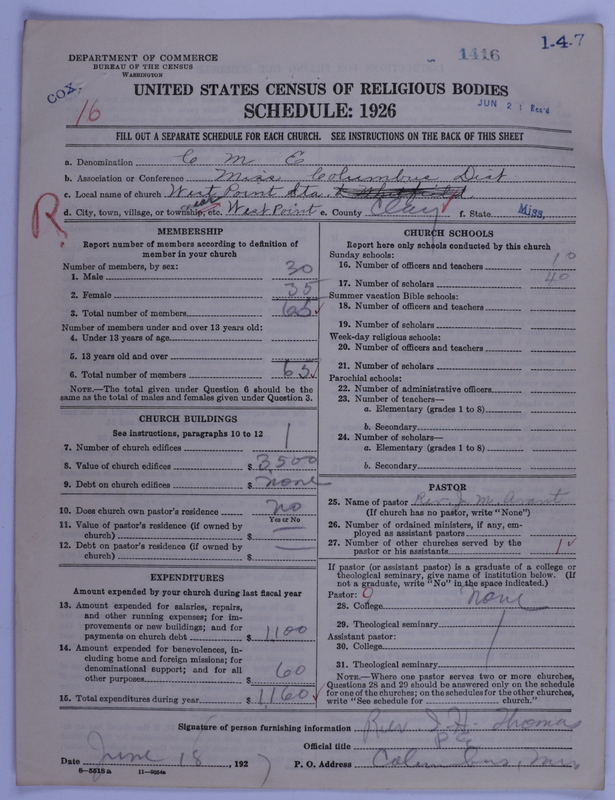 DEPARTMENT OF COMMERCE
BUREAU OF THE CENSUS
WASHINGTON
1416
1-4-7
COX,
16
UNITED STATES CENSUS OF RELIGIOUS BODIES
SCHEDULE: 1926
JUN 21 Rec'd
FILL OUT A SEPARATE SCHEDULE FOR EACH CHURCH. SEE INSTRUCTIONS ON THE BACK OF THIS SHEET
a. Denomination C M E
b. Association or Conference Miss Columbus Dist
c. Local name of church West Point Sta.
d. City, town, village, or township, etc. near West Point e. County Clay f. State Miss.
R
MEMBERSHIP
Report number of members according to definition of member in your church
Number of members, by sex:
1. Male 30
2. Female 35
3. Total number of members 65
Number of members under and over 13 years old:
4. Under 13 years of age
5. 13 years old and over
6. Total number of members 65
NOTE.—The total given under Question 6 should be the same as the total of males and females given under Question 3.
CHURCH BUILDINGS
See instructions, paragraphs 10 to 12
7. Number of church edifices 1
8. Value of church edifices $ 3,500
9. Debt on church edifices $ none
10. Does church own pastor's residence? no
Yes or No
11. Value of pastor's residence (if owned by church) $
12. Debt on pastor's residence (if owned by church) $
EXPENDITURES
Amount expended by your church during last fiscal year
13. Amount expended for salaries, repairs, and other running expenses; for improvements or new buildings; and for payments on church debt $ 1,100
14. Amount expended for benevolences, including home and foreign missions; for denominational support; and for all other purposes $ 60
15. Total expenditures during year $ 1,160
CHURCH SCHOOLS
Report here only schools conducted by this church
Sunday schools:
16. Number of officers and teachers 10
17. Number of scholars 40
Summer vacation Bible schools:
18. Number of officers and teachers
19. Number of scholars
Week-day religious schools:
20. Number of officers and teachers
21. Number of scholars
Parochial schools:
22. Number of administrative officers
23. Number of teachers—
a. Elementary (grades 1 to 8)
b. Secondary
24. Number of scholars—
a. Elementary (grades 1 to 8)
b. Secondary
PASTOR
25. Name of pastor Rev. J. M. Avant
(If church has no pastor, write "None")
26. Number of ordained ministers, if any, employed as assistant pastors
27. Number of other churches served by the pastor or his assistants 1
If pastor (or assistant pastor) is a graduate of a college or theological seminary, give name of institution below. (If not a graduate, write "No" in the space indicated.)
Pastor: 9
28. College none
29. Theological seminary
Assistant pastor:
30. College
31. Theological seminary
NOTE.—Where one pastor serves two or more churches, Questions 28 and 29 should be answered only on the schedule for one of the churches; on the schedules for the other churches, write "See schedule for church."
Signature of person furnishing information Rev J. H. Thomas
Official title P E
Date June 18, 1927 P. O. Address Columbus, Miss
8-5518a 11-9054a